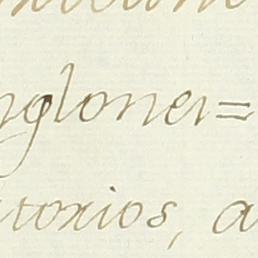 ngloner=
torios, a